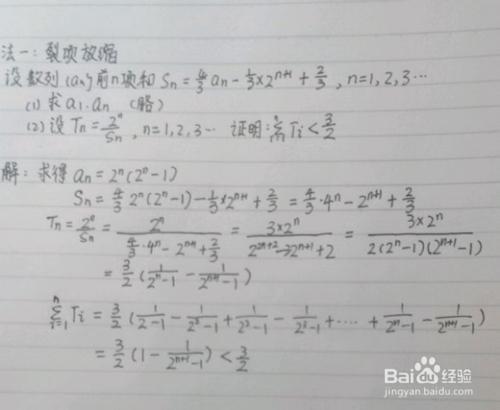 法一：裂项放缩
设数列{an}前n项和 Sn = 4/3 an - 1/3×2^(n+1) + 2/3, n=1, 2, 3 ···
(1) 求 a1. an （略）
(2) 设 Tn = 2^n/Sn, n=1, 2, 3 ··· 证明: Σ(i=1→n) Ti < 3/2
解：求得 an = 2^n(2^n-1)
Sn = 4/3 2^n(2^n-1) - 1/3×2^(n+1) + 2/3 = 4/3·4^n - 2^(n+1) + 2/3
Tn = 2^n/Sn = 2^n/(4/3·4^n - 2^(n+1) + 2/3) = 3×2^n/(2^(2n+2) - 3×2^(n+1) + 2) = 3×2^n/(2(2^n-1)(2^(n+1)-1))
= 3/2 (1/(2^n-1) - 1/(2^(n+1)-1))
Σ(i=1→n) Ti = 3/2 (1/(2-1) - 1/(2^2-1) + 1/(2^2-1) - 1/(2^3-1) + ···· + 1/(2^n-1) - 1/(2^(n+1)-1))
= 3/2 (1 - 1/(2^(n+1)-1)) < 3/2
Baidu 经验
jingyan.baidu.com